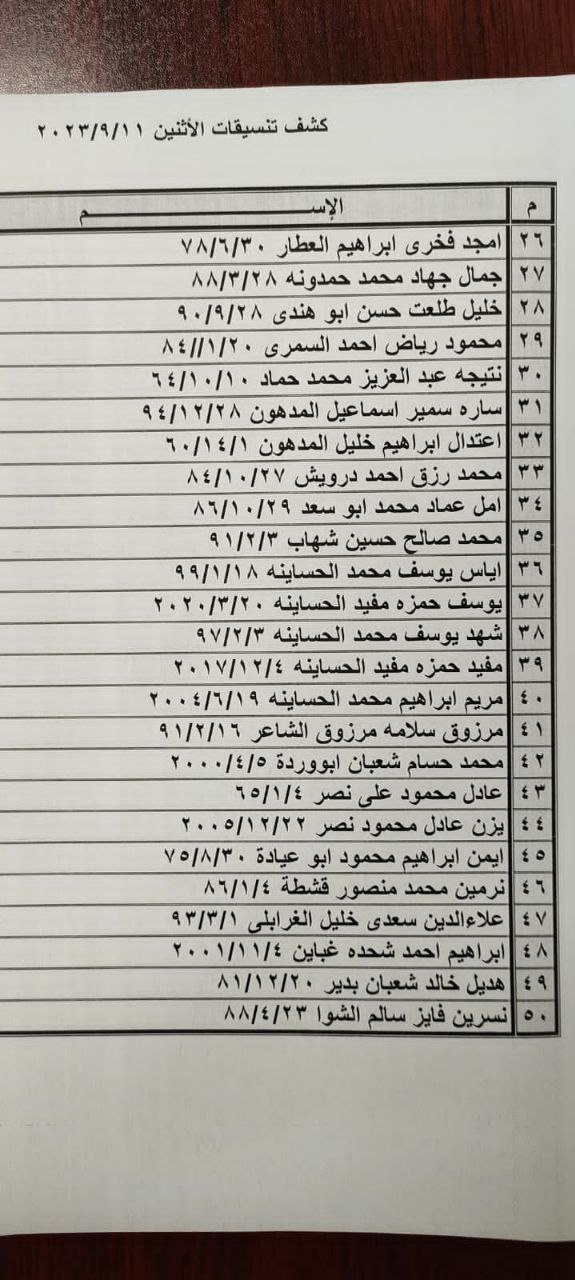 كشف تنسيقات الأثنين ٢٠٢٣/٩/١١
م الإســـــــــم
٢٦ امجد فخرى ابراهيم العطار ٧٨/٦/٣٠
٢٧ جمال جهاد محمد حمدونه ٨٨/٣/٢٨
٢٨ خليل طلعت حسن ابو هندى ٩٠/٩/٢٨
٢٩ محمود رياض احمد السمرى ٨٤//١/٢٠
٣٠ نتيجه عبد العزيز محمد حماد ٦٤/١٠/١٠
٣١ ساره سمير اسماعيل المدهون ٩٤/١٢/٢٨
٣٢ اعتدال ابراهيم خليل المدهون ٦٠/١٤/١
٣٣ محمد رزق احمد درويش ٨٤/١٠/٢٧
٣٤ امل عماد محمد ابو سعد ٨٦/١٠/٢٩
٣٥ محمد صالح حسين شهاب ٩١/٢/٣
٣٦ اياس يوسف محمد الحساينه ٩٩/١/١٨
٣٧ يوسف حمزه مفيد الحساينه ٢٠٢٠/٣/٢٠
٣٨ شهد يوسف محمد الحساينه ٩٧/٢/٣
٣٩ مفيد حمزه مفيد الحساينه ٢٠١٧/١٢/٤
٤٠ مريم ابراهيم محمد الحساينه ٢٠٠٤/٦/١٩
٤١ مرزوق سلامه مرزوق الشاعر ٩١/٢/١٦
٤٢ محمد حسام شعبان ابووردة ٢٠٠٠/٤/٥
٤٣ عادل محمود على نصر ٦٥/١/٤
٤٤ يزن عادل محمود نصر ٢٠٠٥/١٢/٢٢
٤٥ ايمن ابراهيم محمود ابو عيادة ٧٥/٨/٣٠
٤٦ نرمين محمد منصور قشطة ٨٦/١/٤
٤٧ علاءالدين سعدى خليل الغرابلى ٩٣/٣/١
٤٨ ابراهيم احمد شحده غباين ٢٠٠١/١١/٤
٤٩ هديل خالد شعبان بدير ٨١/١٢/٢٠
٥٠ نسرين فايز سالم الشوا ٨٨/٤/٢٣